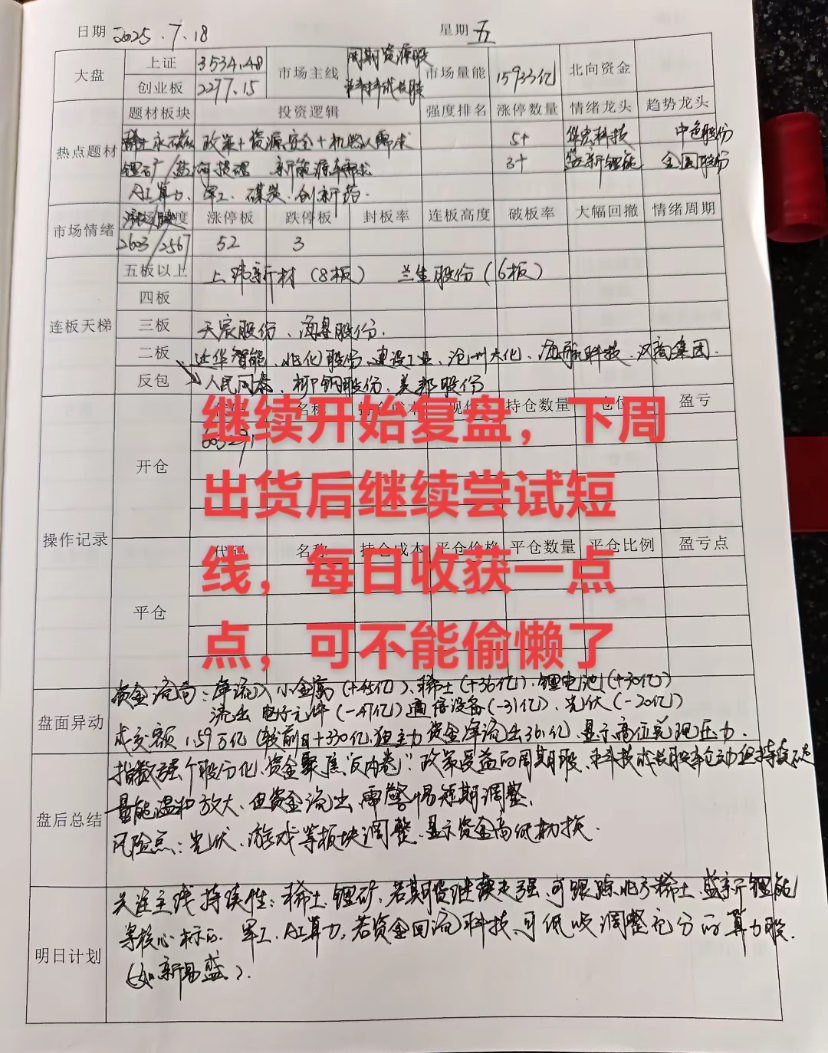 日期 2025.7.18 星期 五
大盘 上证 3534.48 市场主线 周期资源股 市场量能 15933亿 北向资金
创业板 2277.15 科技成长股
热点题材 题材板块 投资逻辑 强度排名 涨停数量 情绪龙头 趋势龙头
稀土永磁 政策+资源安全+机器人需求 5+ 华宏科技 中色股份
锂矿/盐湖提锂 新能源车需求 3+ 盛新锂能 全国股份
AI算力、军工、煤炭、创新药.
市场情绪 涨停板 跌停板 封板率 连板高度 破板率 大幅回撤 情绪周期
2603/2567 52 3
连板天梯 五板以上 上纬新材(8板) 兰生股份(6板)
四板
三板 天宸股份、海星股份.
二板 达华智能、北化股份、建设工业、沧州大化、海航科技、汉商集团.
反包 人民同泰、柳钢股份、美邦股份
操作记录 开仓 名称 持仓成本 现价 持仓数量 仓位 盈亏
平仓 代码 名称 持仓成本 平仓价格 平仓数量 平仓比例 盈亏点
继续开始复盘，下周
出货后继续尝试短
线，每日收获一点
点，可不能偷懒了
盘面异动 资金流向：净流入 小金属(+45亿)、稀土(+36亿)、锂电池(+30亿)
流出 电子元件(-47亿) 通信设备(-31亿)、光伏(-20亿)
成交额1.59万亿(较前日+330亿,但主力资金净流出361亿,显示高位兑现压力.
盘后总结 指数强个股分化,资金聚焦"反内卷"政策受益的周期股,科技成长股轮动但持续不足
量能温和放大,但资金流出,需警惕短期调整.
风险点:光伏、游戏等板块调整,显示资金高低切换.
明日计划 关注主线持续性:稀土、锂矿,若期货继续走强,可跟踪北方稀土、盛新锂能
等核心标的.军工、AI算力,若资金回流科技,可低吸调整充分的算力股.
(如新易盛).